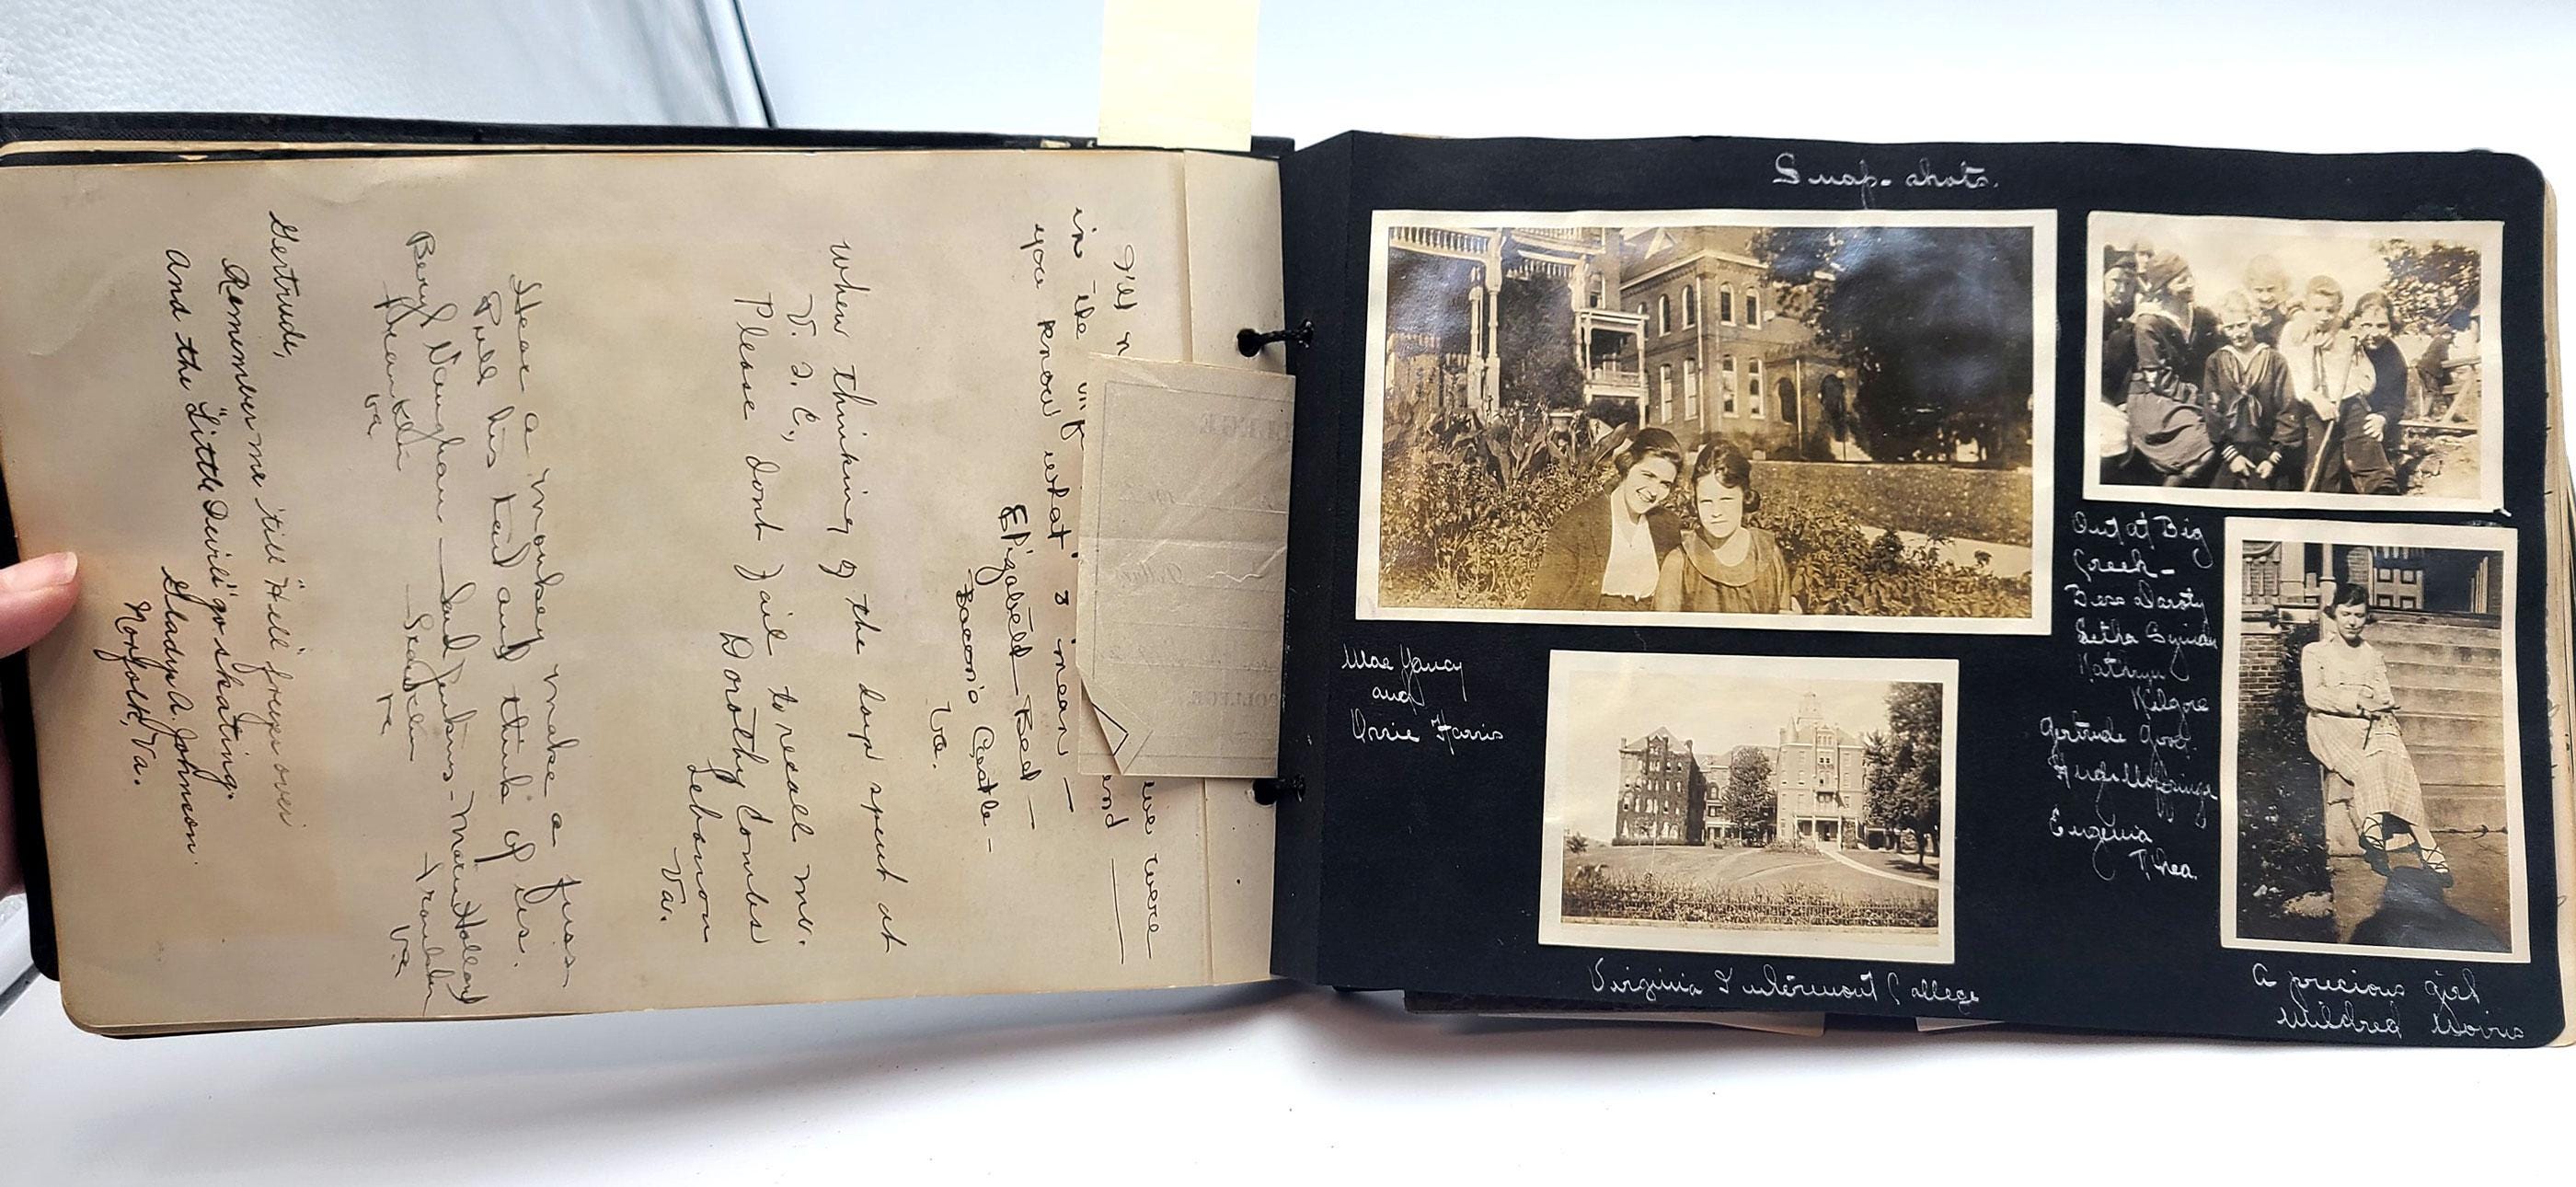 I'll n
we were
in the
end
you know what I mean —
Elizabeth Bell —
Bacon's Castle —
Va.
When thinking of the days spent at
V. I. C.,
Please dont fail to recall me.
Dorothy Combs
Lebanon
Va.
Hear a monkey make a fuss
Pull his tail and think of us.
Beryl Vaughan — Jenkins — Holland
Franklin
Va
Va
Va
Gertrude,
Remember me 'till "Hell" freezes over
And the "Little Devils" go skating.
Gladys A. Johnson.
Norfolk, Va.
COLLEGE
Snap-shots.
Mae Yancy
and
Orrie Harris
Virginia Intermont College
Out at Big
Creek —
Bess Daroty
Letha
Kathryn
Kilgore
Gertrude Good.
Eugenia
Rhea.
A precious girl
Mildred